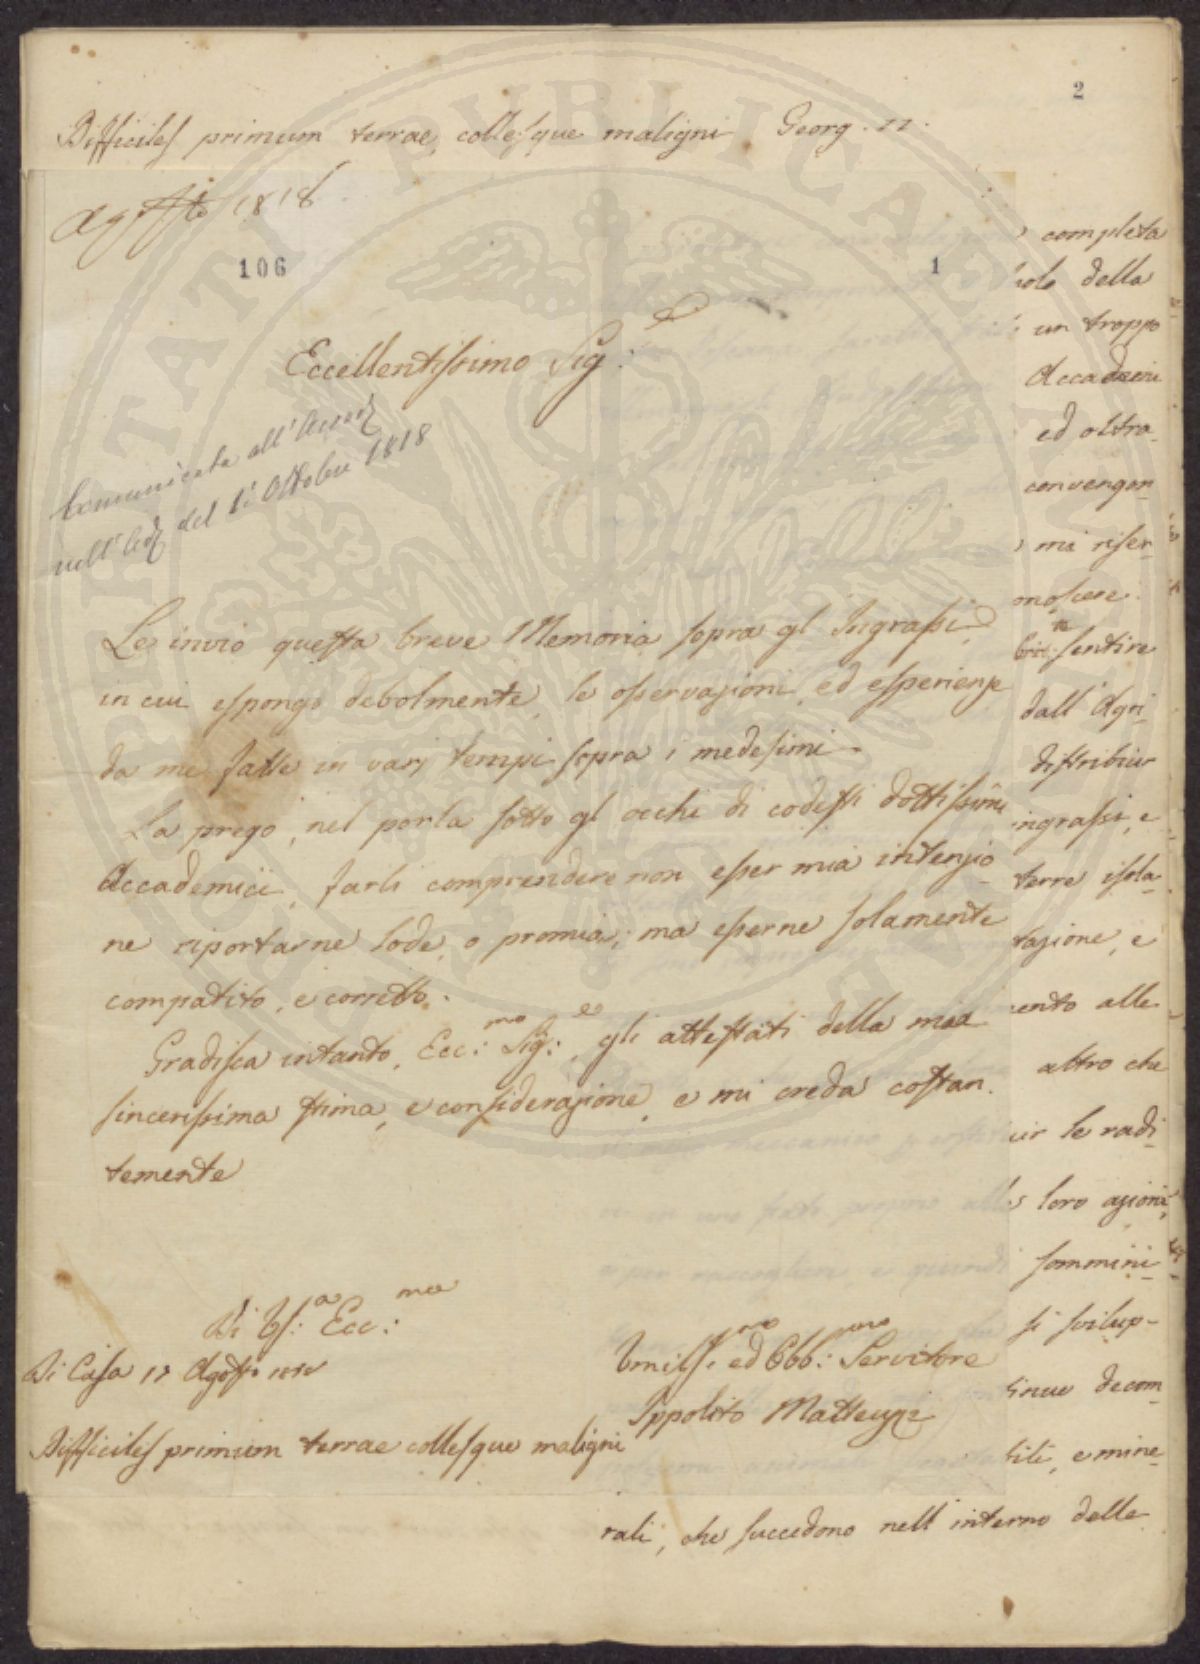 2
Difficiles primum terrae, collesque maligni Georg. 11.
Agosto 1818
106
1
Eccellentissimo Sig.e
Comunicata all'Accad.
nell'Ad. del 1.° Ottobre 1818
Le invio questa breve Memoria sopra gl' Ingrassi,
in cui espongo debolmente le osservazioni, ed esperienze
da me fatte in varj tempi sopra i medesimi.
La prego, nel porla sotto gl' occhi di codesti dottissimi
Accademici, farli comprendere non esser mia intenzio
ne riportarne lode, o premia; ma esserne solamente
compatito, e corretto.
Gradisca intanto, Ecc:mo Sig:e, gli attestati della mia
sincerissima stima, e considerazione, e mi creda costan.
temente
Di VS:a Ecc:ma
Di Casa 17 Agosto 1818
Umilss.mo ed Obb:mo Servitore
Ippolito Matteuzzi
Difficiles primum terrae collesque maligni
completa
della
un troppo
Accademi
ed oltra-
convengon-
mi riser-
sentire
dall' Agri-
distribuir
ingrassi, e
terre isola-
tazione, e
mento alle
altro che
le radi-
loro azioni,
sommini-
si svilup-
decom
e mine-
rali, che succedono nell' interno delle